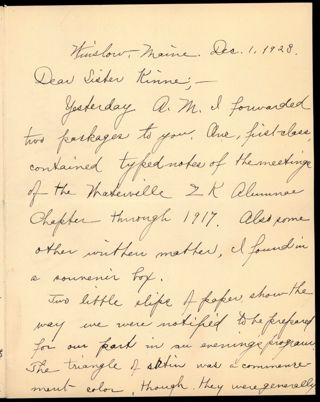 Winslow, Maine. Dec. 1, 1928.
Dear Sister Kinne;—
Yesterday A. M. I forwarded
two packages to you. One, first-class,
contained typed notes of the meetings
of the Waterville Σ K Alumnae
Chapter through 1917. Also some
other written matter, I found in
a souvenir box.
Two little slips of paper, show the
way we were notified to be prepared
for our part in an evening's program
The triangle of satin was a commence
ment color, though they were generally